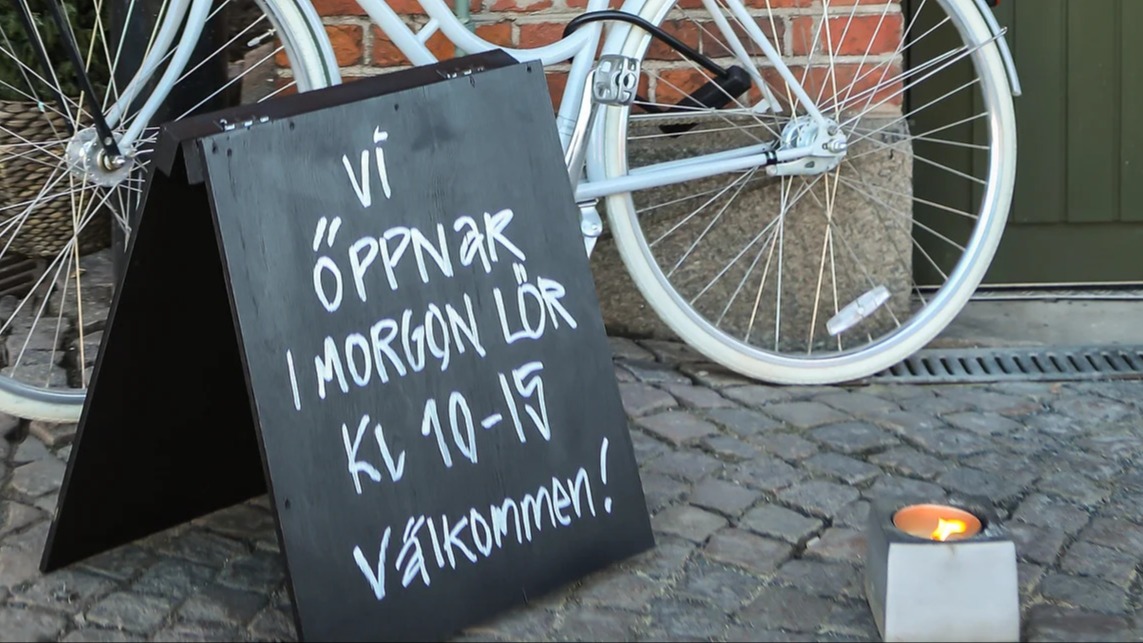 Vi
ÖPPNAR
I MORGON LÖR
KL 10-15
Välkommen!